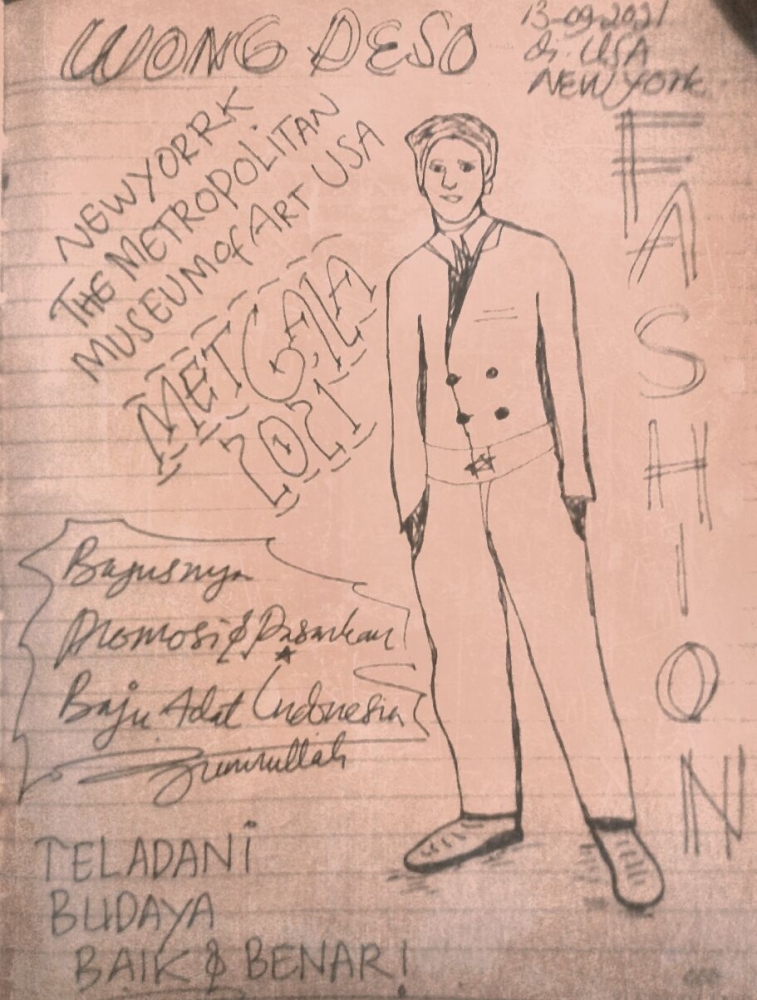 WONG DESO
13-09-2021
di USA
NEW York
NEWYORRK
THE METROPOLITAN
MUSEUM of ART USA
METGALA
2021
FASHION
Bagusnya
Promosi & Pasarkan
Baju Adat Indonesia
TELADANi
BUDAYA
BAIK & BENAR!